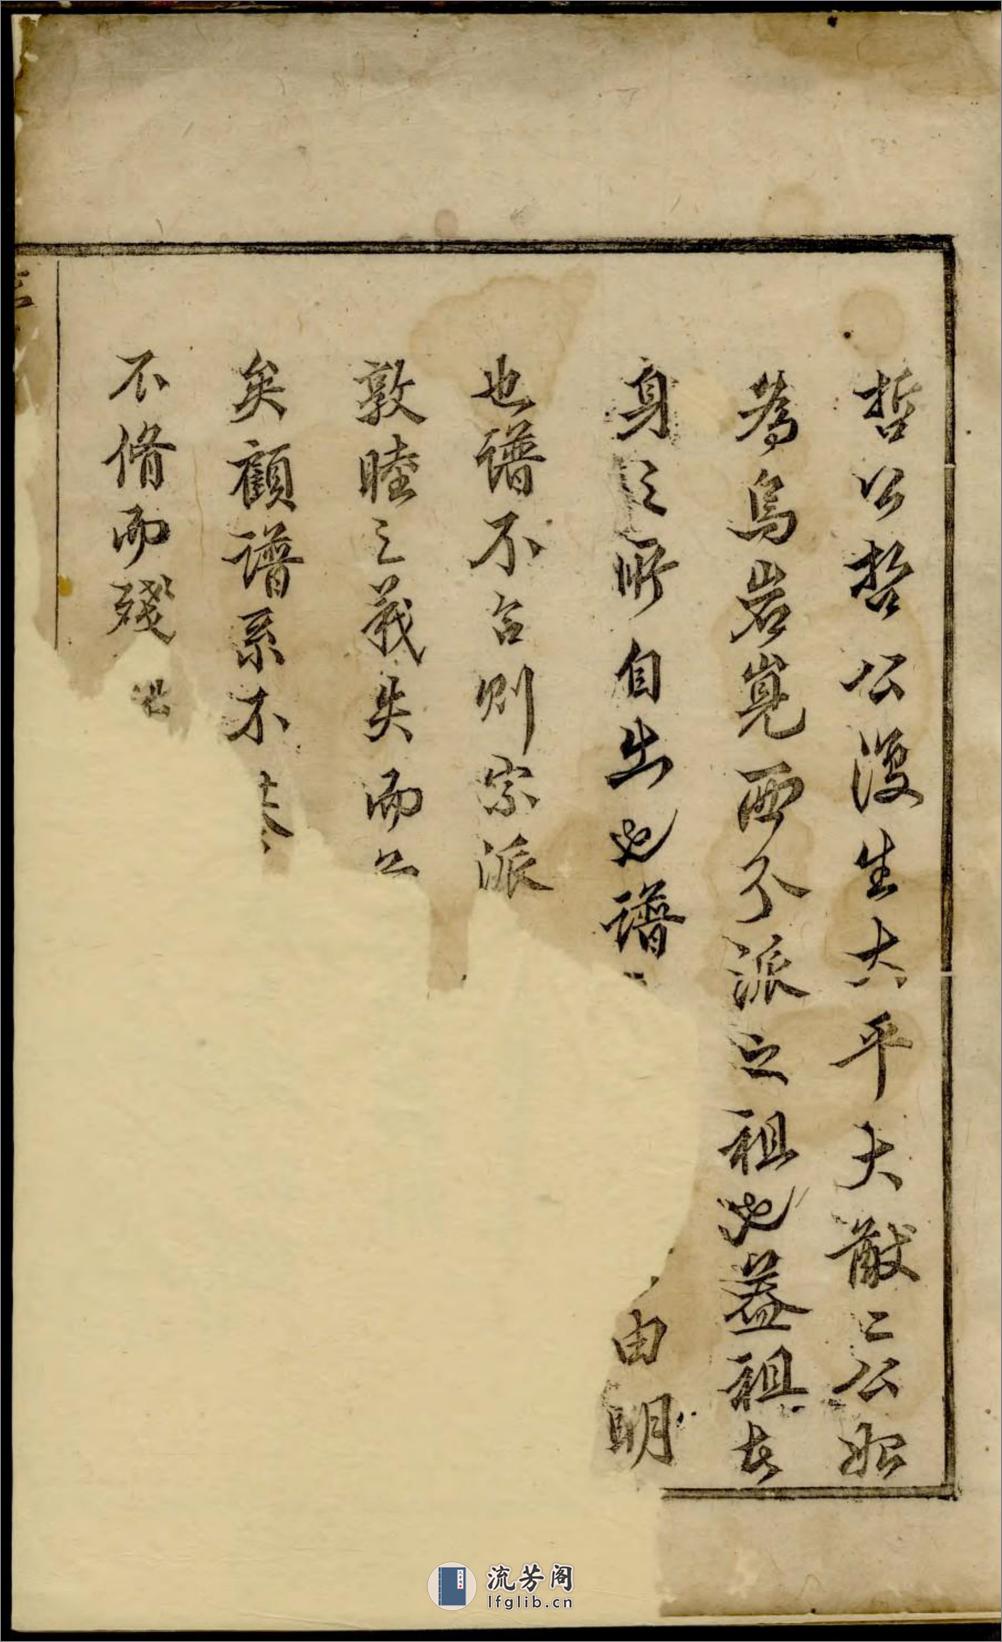 哲公哲公復生大平大猷二公始
為烏岩西分派之祖也蓋祖者
身之所自出也譜由明
也譜不合則宗派
敦睦之義失而
矣顧譜系不
不脩而殘
流芳阁
lfglib.cn